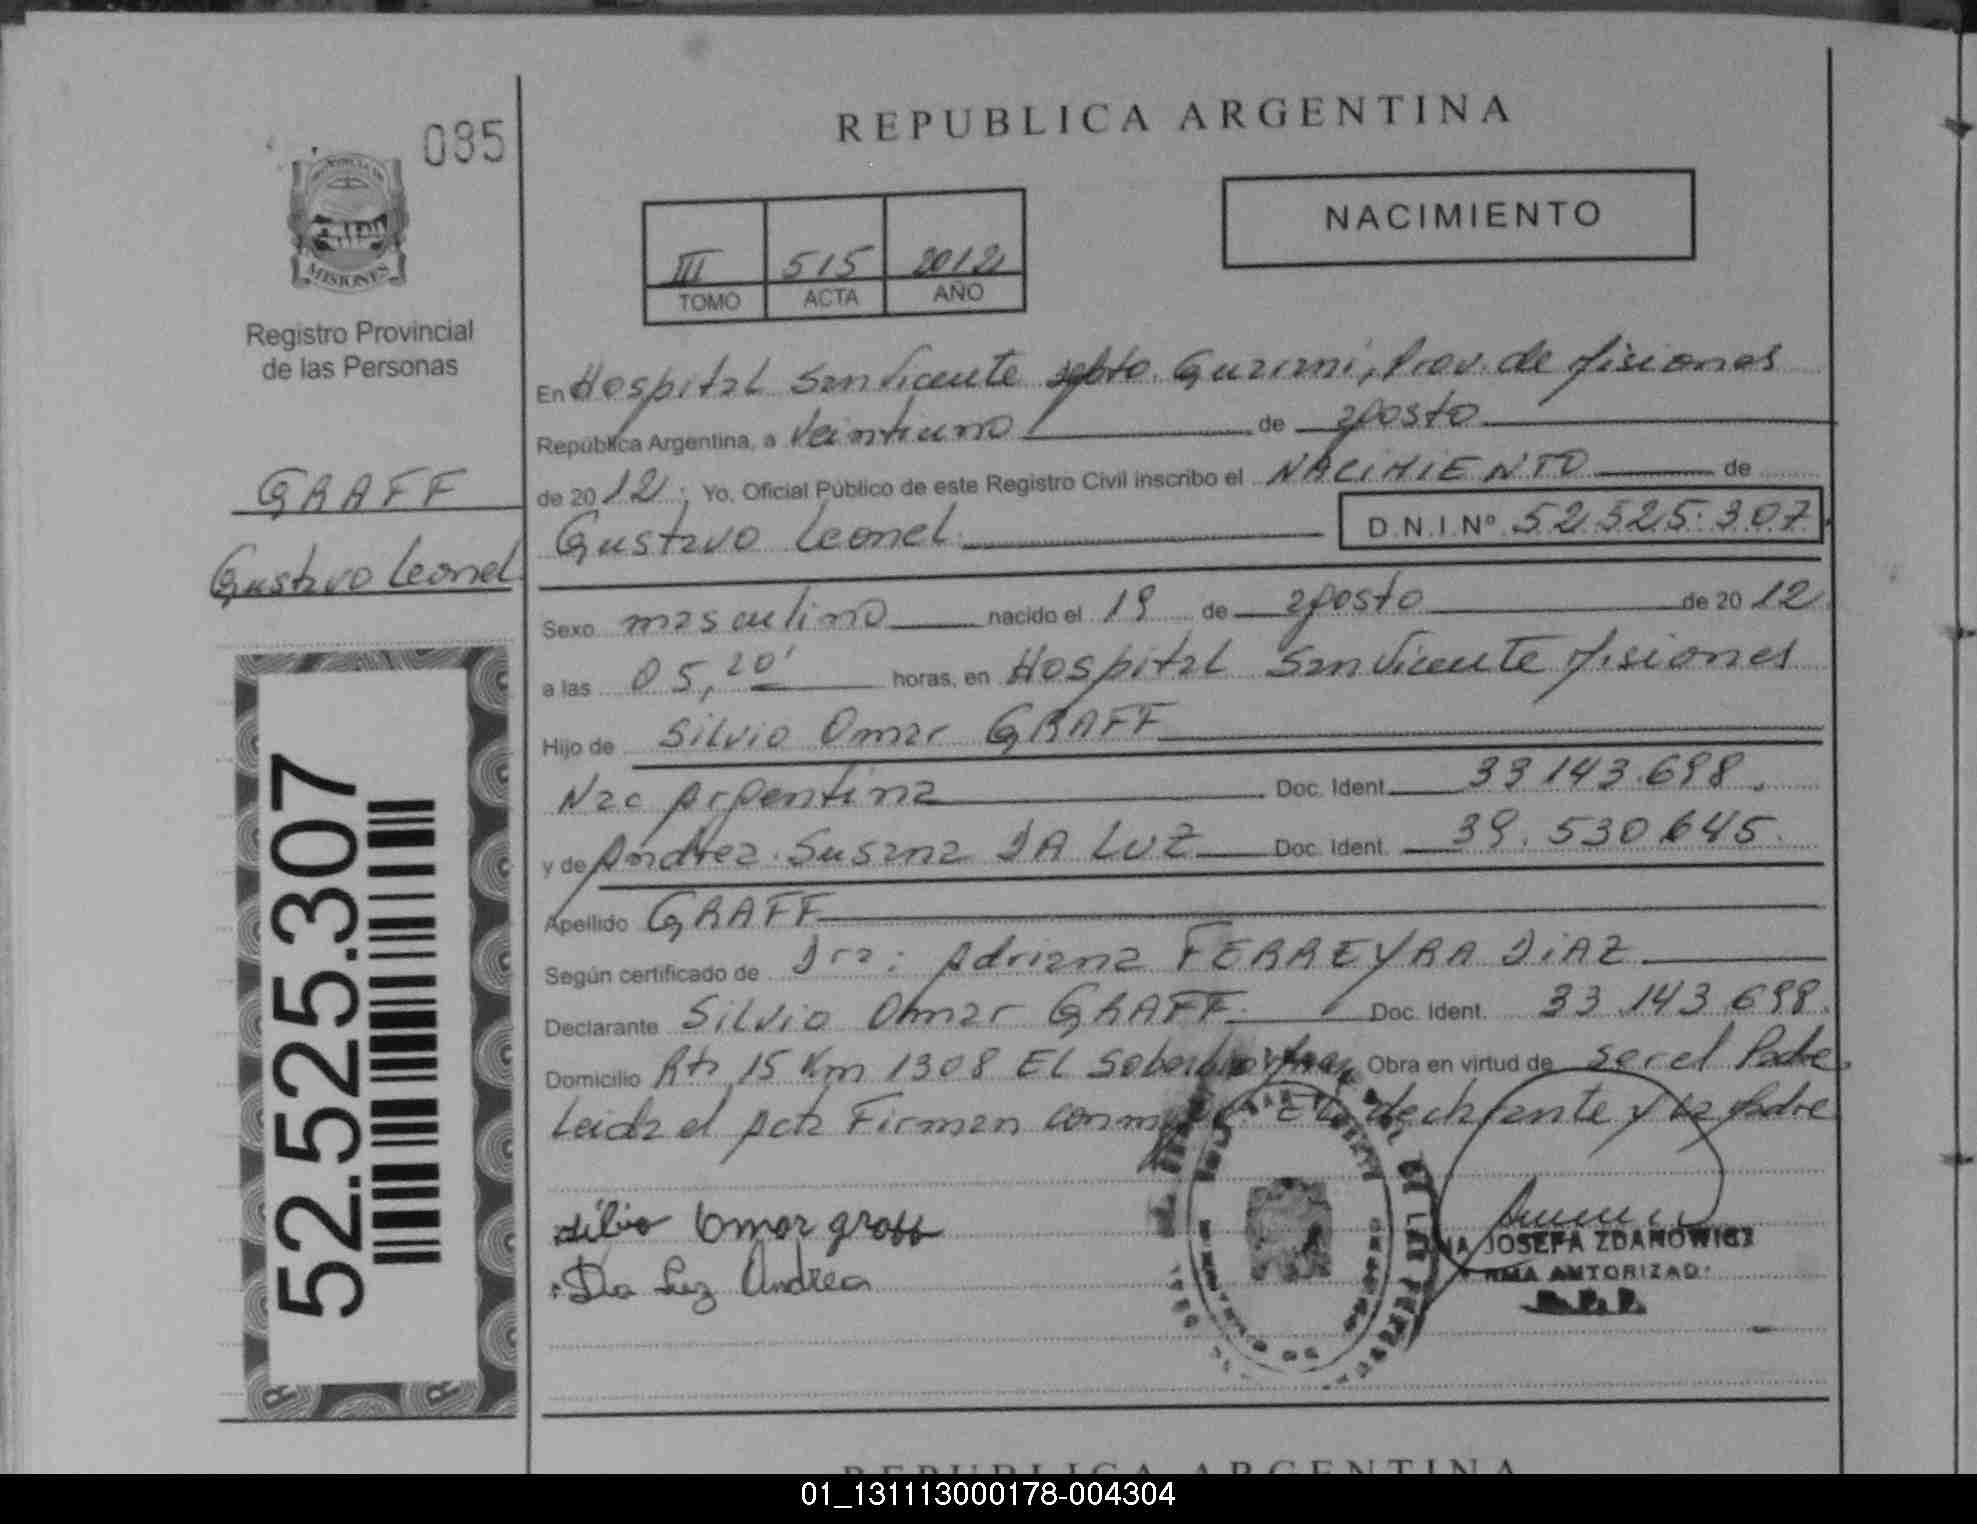 085
REPUBLICA ARGENTINA
NACIMIENTO
III 515 2012
TOMO ACTA AÑO
MISIONES
Registro Provincial
de las Personas
GRAFF
Gustavo Leonel
52.525.307
En Hospital San Vicente Dpto. Guarani, Prov. de Misiones
República Argentina, a Veintiuno de agosto
de 2012; Yo, Oficial Público de este Registro Civil inscribo el NACIMIENTO de
Gustavo Leonel D.N.I.Nº 52.525.307
Sexo masculino nacido el 19 de agosto de 2012
a las 05,20' horas, en Hospital San Vicente Misiones
Hijo de Silvio Omar GRAFF
Nac Argentina Doc. Ident. 33.143.698.
y de Andrea Susana DA LUZ Doc. Ident. 39.530.645.
Apellido GRAFF
Según certificado de Dra: Adriana FERREYRA DIAZ
Declarante Silvio Omar GRAFF. Doc. Ident. 33.143.698.
Domicilio Rta 15 Km 1308 El Soberbio Obra en virtud de ser el Padre.
Leida el Acta Firman El declarante y La Madre
Silvio Omar graff
Da Luz Andrea
JOSEFA ZDANOWICZ
AUTORIZAD
REPUBLICA ARGENTINA
01_131113000178-004304